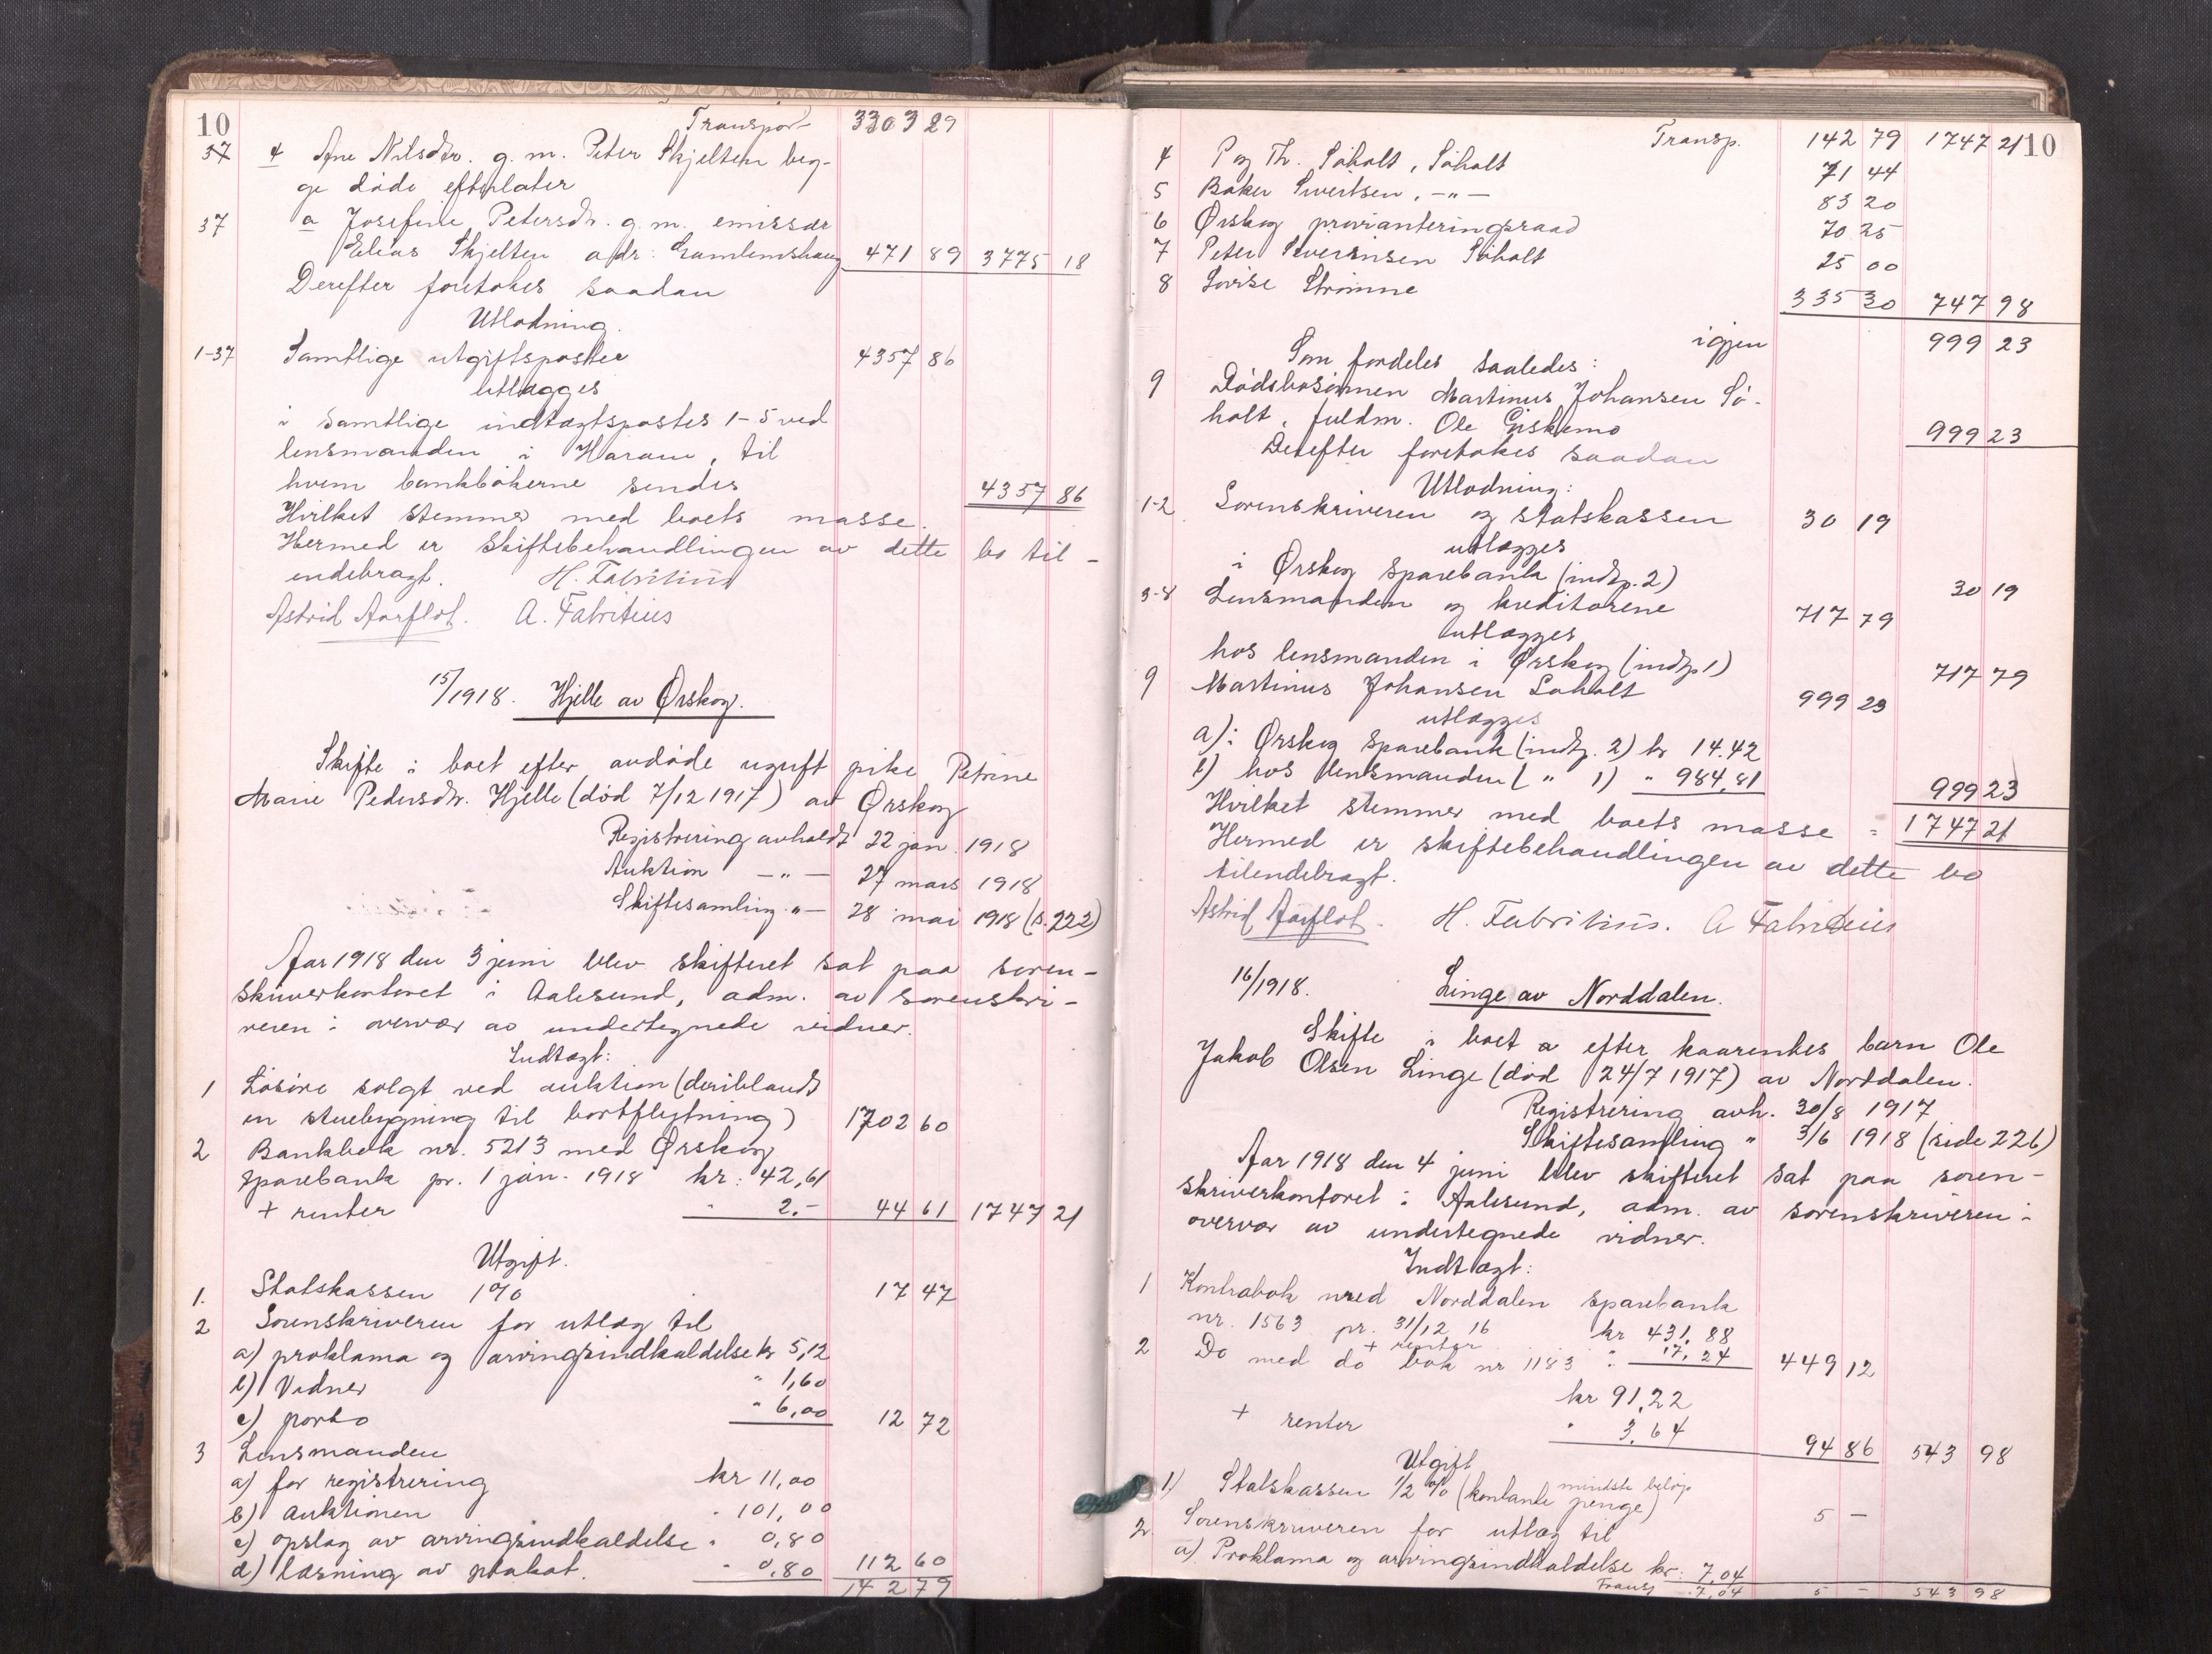 10
Transport 3303 29
37 4 Ane Nilsdtr. g. m. Peter Skjelten beg-
ge döde efterlater
37 a Josefine Petersdtr. g. m. emissær
Elias Skjelten adr: Gamlemshaug 471 89 3775 18
Derefter foretokes saadan
Utlodning.
1-37 Samtlige utgiftsposter 4357 86
utlægges
i samtlige indtægtsposter 1-5 ved
lensmanden i Haram, til
hvem bankbökerne sendes 4357 86
Hvilket stemmer med boets masse.
Hermed er skiftebehandlingen av dette bo til-
endebragt. H. Fabritius
Astrid Aarflot. A. Fabritius
15/1918. Hjelle av Ørskog.
Skifte i boet efter avdöde ugift pike Petrine
Marie Pedersdtr. Hjelle (död 7/12 1917) av Ørskog
Registrering avholdt 22 jan. 1918
Auktion — " — 27 mars 1918
Skiftesamling " — 28 mai 1918 (s. 222)
Aar 1918 den 3 juni blev skifteret sat paa soren-
skriverkontoret i Aalesund, adm. av sorenskri-
veren i overvær av undertegnede vidner.
Indtægt:
1 Lösöre solgt ved auktion (deriblandt
en stuebygning til bortflytning) 1702 60
2 Bankbok nr. 5213 med Ørskog
sparebank pr. 1 jan. 1918 kr: 42,61
+ renter " 2.- 44 61 1747 21
Utgift.
1. Statskassen 1% 17 47
2 Sorenskriveren for utlæg til
a) proklama og arvingsindkaldelse kr 5,12
b) Vidner " 1,60
c) porto " 6,00 12 72
3 Lensmanden
a) for registrering kr 11,00
b) auktionen " 101,00
c) opslag av arvingsindkaldelse " 0,80
d) læsning av plakat. " 0,80 112 60
142 79
Transp. 142 79 1747 21 10
4 P og Th. Söholt, Söholt 71 44
5 Baker Sivertsen, — " — 83 20
6 Ørskog provianteringsraad 70 25
7 Peter Severinsen Söholt 25 00
8 Lovise Strömme 335 30 747 98
igjen 999 23
Som fordeles saaledes:
9 Dödsbosönnen Martinus Johansen Sö-
holt, fuldm. Ole Giskemo 999 23
Derefter foretokes saadan
Utlodning:
1-2 Sorenskriveren og statskassen 30 19
utlægges
i Ørskog sparebank (indtp. 2) 30 19
3-8 Lensmanden og kreditorene 717 79
utlægges
hos lensmanden i Ørskog (indtp 1) 717 79
9 Martinus Johansen Söholt 999 23
utlægges
a) i Ørskog sparebank (indtp. 2) kr 14.42
b) hos lensmanden ( " 1) " 984,81 999 23
Hvilket stemmer med boets masse = 1747 21
Hermed er skiftebehandlingen av dette bo
tilendebragt.
Astrid Aarflot. H. Fabritius. A Fabritius
16/1918. Linge av Norddalen.
Skifte i boet a efter kaarenkes barn Ole
Jakob Olsen Linge (död 24/7 1917) av Norddalen.
Registrering avh. 30/8 1917
Skiftesamling " 3/6 1918 (side 226)
Aar 1918 den 4 juni blev skifteret sat paa soren-
skriverkontoret i Aalesund, adm. av sorenskriveren i
overvær av undertegnede vidner.
Indtægt:
1 Kontrabok med Norddalen sparebank
nr. 1563 pr. 31/12 16 kr 431,88
+ renter " 17,24 449 12
2 Do med do bok nr 1183 :
kr 91,22
+ renter " 3,64 94 86 543 98
Utgift
1) Statskassen 1/2 % (kontante penge) mindste belöp 5 —
2. Sorenskriveren for utlæg til
a) Proklama og arvingsindkaldelse kr: 7,04
Transp 7,04 5 — 543 98